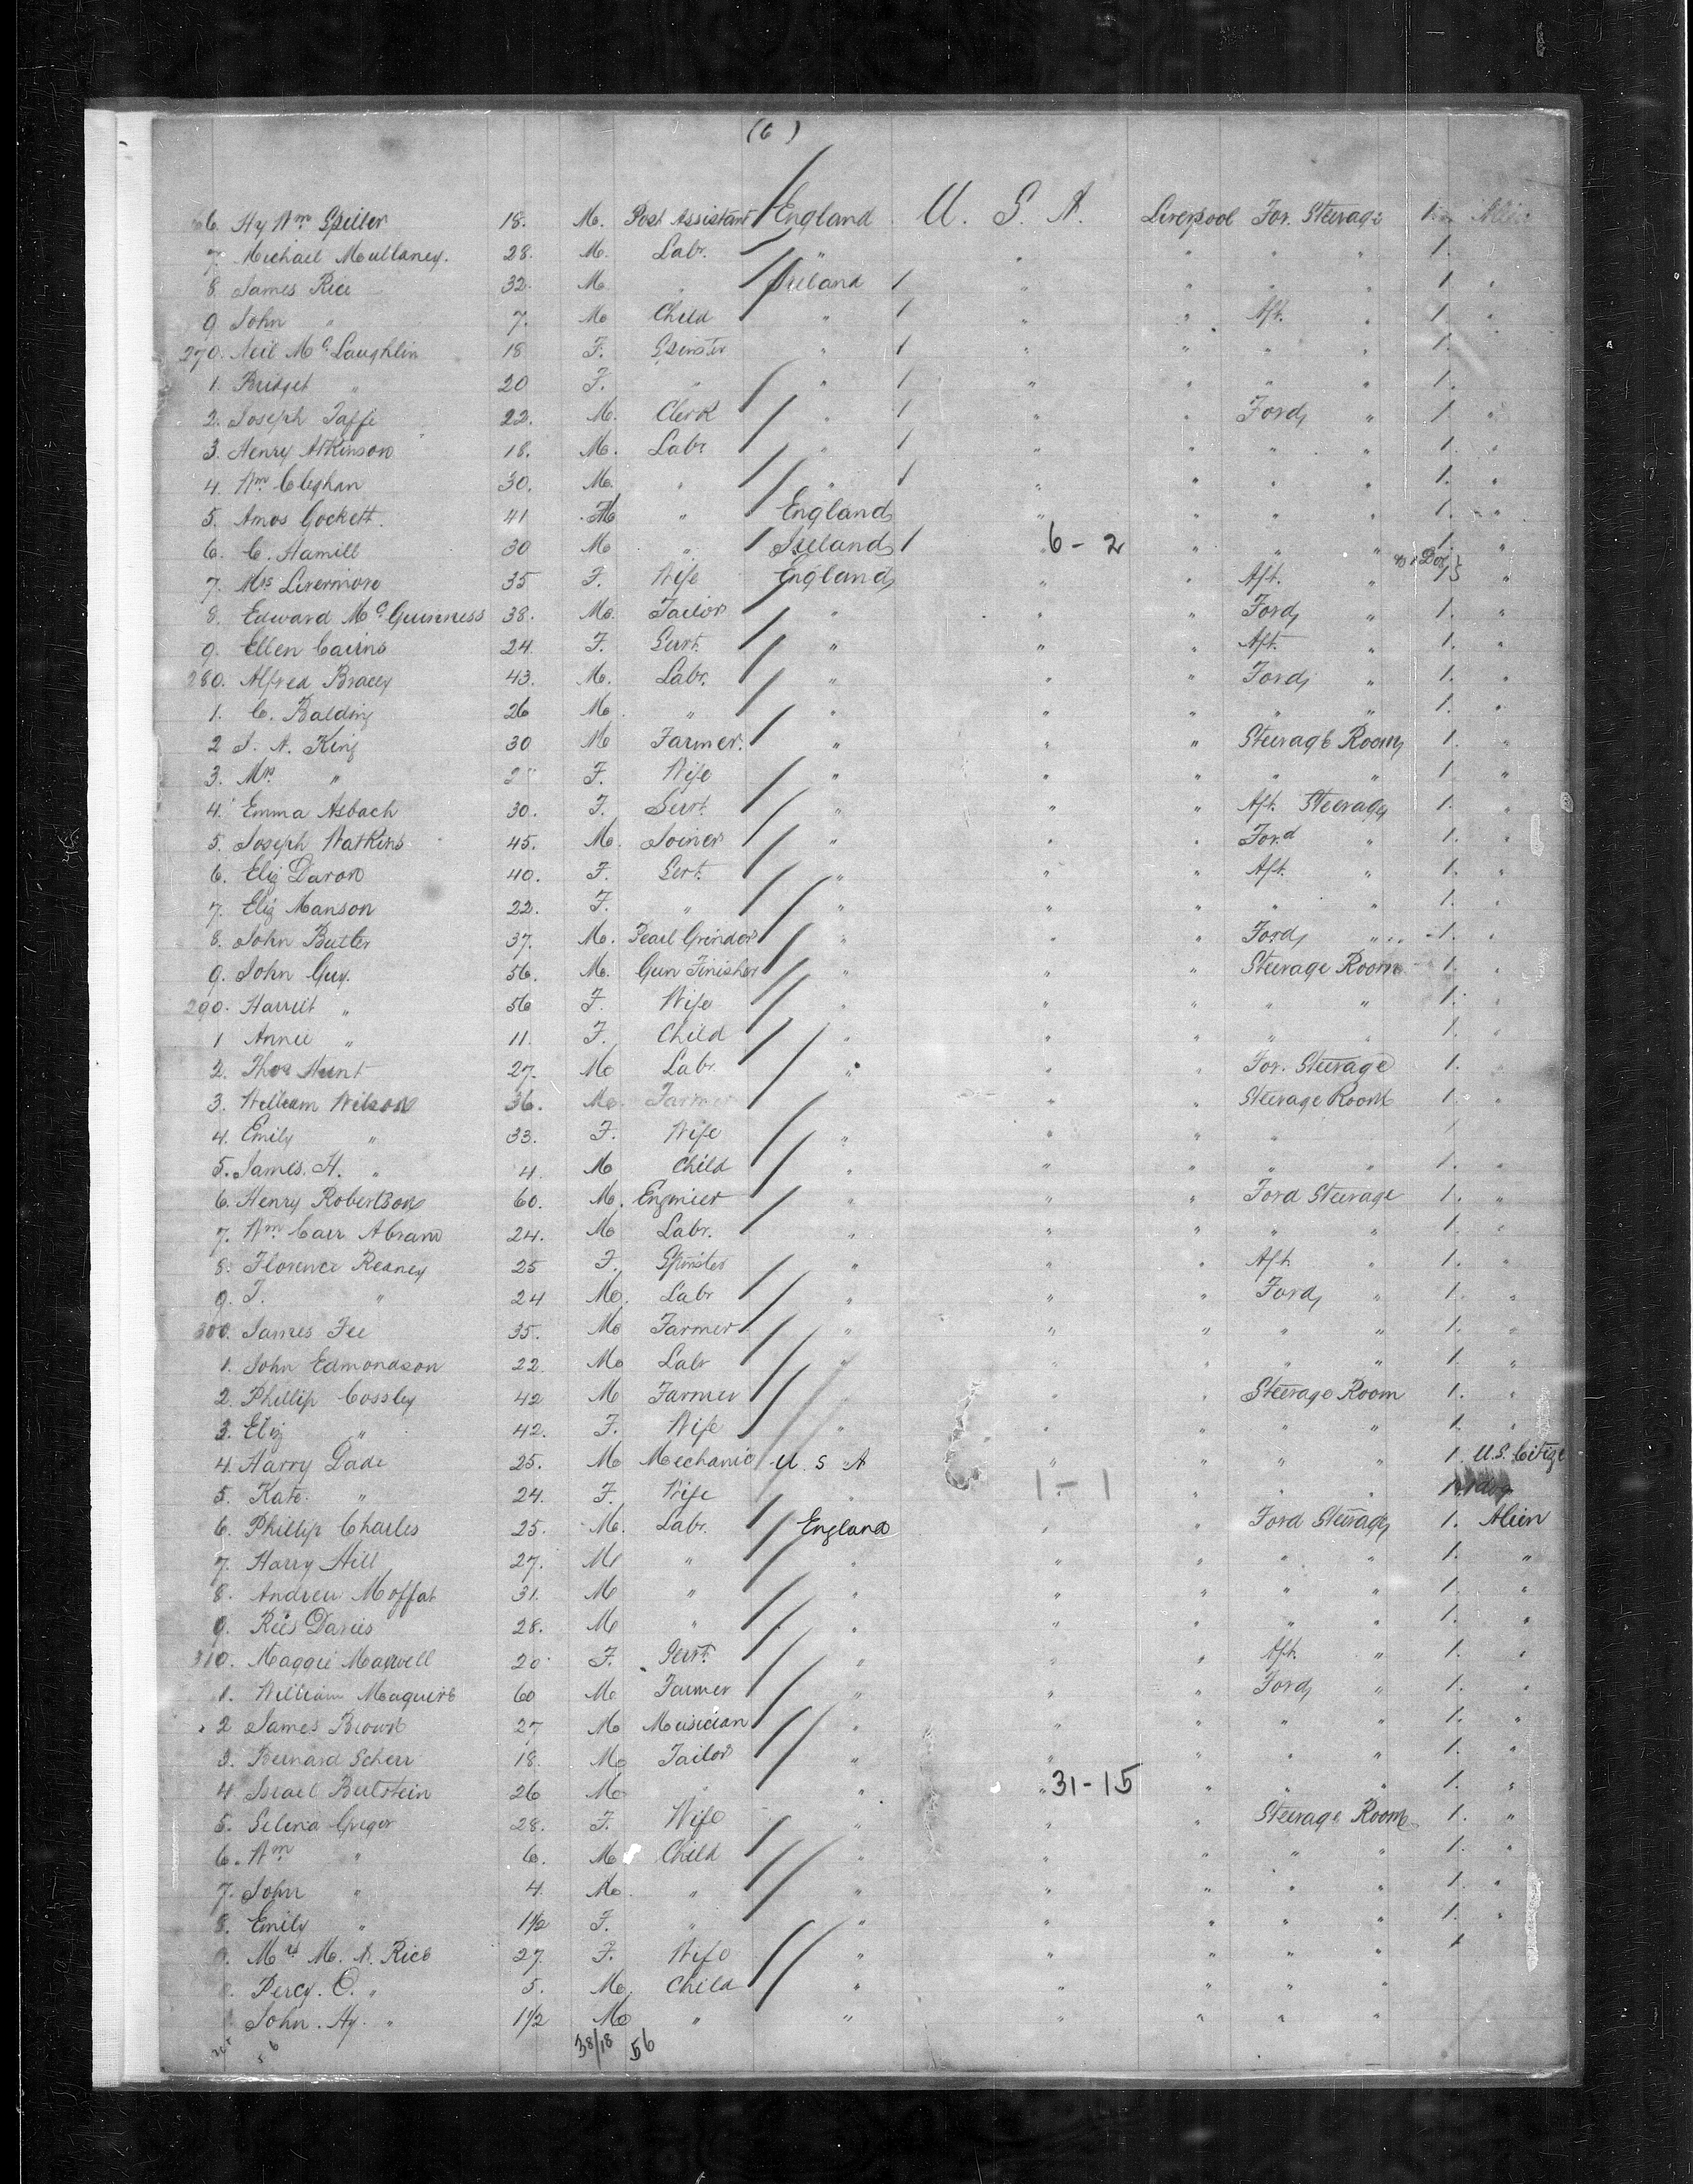 (6)
66. Hy Wm Spiller 18. M. Post Assistant England U. S. A. Liverpool For. Steerage 1 Alien
7. Michael Mullaney. 28. M. Labr. " " " " " 1.
8. James Rice 32. M " Ireland 1 " " " " 1 "
9 John " 7. M Child " 1 " " Aft. " 1 "
270. Neil McLaughlin 18 F. Spinster " 1 " " " " 1.
1. Bridget " 20 F. " " 1 " " " " 1.
2. Joseph Taffe 22. M. Clerk " 1 " " Ford " 1 "
3. Henry Atkinson 18. M. Labr " 1 " " " " 1. "
4. Wm Cleghan 30. M. " " 1 " " " " 1. "
5. Amos Gockett. 41 M " England " " " " 1. "
6. C. Hamill 30 M " Ireland 1 " 6 - 2 " " " 1. "
7. Mrs Livermore 35 F. Wife England " " Aft. " 1 "
8. Edward McGuinness 38. M. Tailor " " " Ford " 1. "
9. Ellen Cairns 24. F. Servt. " " " Aft. " 1. "
280. Alfred Bracey 43. M. Labr. " " " Ford " 1. "
1. C. Balding 26 M " " " " " " 1. "
2 J. A. King 30 M Farmer. " " " Steerage Room 1. "
3. Mrs " F. Wife " " " " " 1 "
4. Emma Asbach 30. F. Servt. " " " Aft. Steerage 1. "
5. Joseph Watkins 45. M. Joiner " " " Ford " 1. "
6. Eliz Daron 40. F. Sert. " " " Aft. " 1. "
7. Eliz Manson 22. F. " " " " " " 1. "
8. John Butler 37. M. Pearl Grinder " " " Ford " 1. "
9. John Guy. 56. M. Gun Finisher " " " Steerage Room 1. "
290. Harriet " 56 F. Wife " " " " " 1. "
1 Annie " 11. F. Child " " " " " 1. "
2. Thos Hunt 27. M Labr " " " For. Steerage 1. "
3. William Wilson 36. M. Farmer " " Steerage Room 1. "
4. Emily " 33. F. Wife " " " " 1
5. James. H. " 4. M Child " " " " " 1. "
6. Henry Robertson 60. M. Engineer " " " Ford Steerage 1. "
7. Wm Carr Abram 24. M Labr. " " " " " 1. "
8. Florence Reaney 25 F. Spinster " " " Aft " 1. "
9. T. " 24 M. Labr " " " Ford " 1. "
300. James Fee 35. M Farmer " " " " " 1. "
1. John Edmondson 22. M Labr " " " " " 1. "
2. Phillip Cossley 42 M Farmer " " " Steerage Room 1. "
3. Eliz " 42. F. Wife " " " " " 1. "
4. Harry Dade 25. M Mechanic U. S. A " " " " 1. U.S. Citize
5. Kate. " 24. F. Wife " 1 - 1 " " " 1
6. Phillip Charles 25. M. Labr. England " " Ford Steerage 1. Alien
7. Harry Hill 27. M " " " " " " 1. "
8. Andrew Moffat 31. M " " " " " " 1. "
9. Rees Davies 28. M " " " " " " 1. "
310. Maggie Maxwell 20 F. Servt. " " " Aft. " 1. "
1. William Maguire 60 M Farmer " " " Ford " 1. "
2 James Brown 27 M Musician " " " " " 1. "
3. Bernard Scherr 18. M Tailor " " " " " 1. "
4. Israel Beilstein 26 M " " " 31-15 " " " 1. "
5. Selina Gregor 28. F. Wife " " " Steerage Room 1. "
6. Wm " 6. M Child " " " " " 1. "
7. John " 4. M. " " " " " " 1. "
8. Emily " 1½ F. " " " " " " 1. "
9. Mrs M. A. Rice 27. F. Wife " " " " " 1
Percy. O. " 5. M. Child " " " " "
John. Hy. " 1½ M " " " " " "
38/18 56